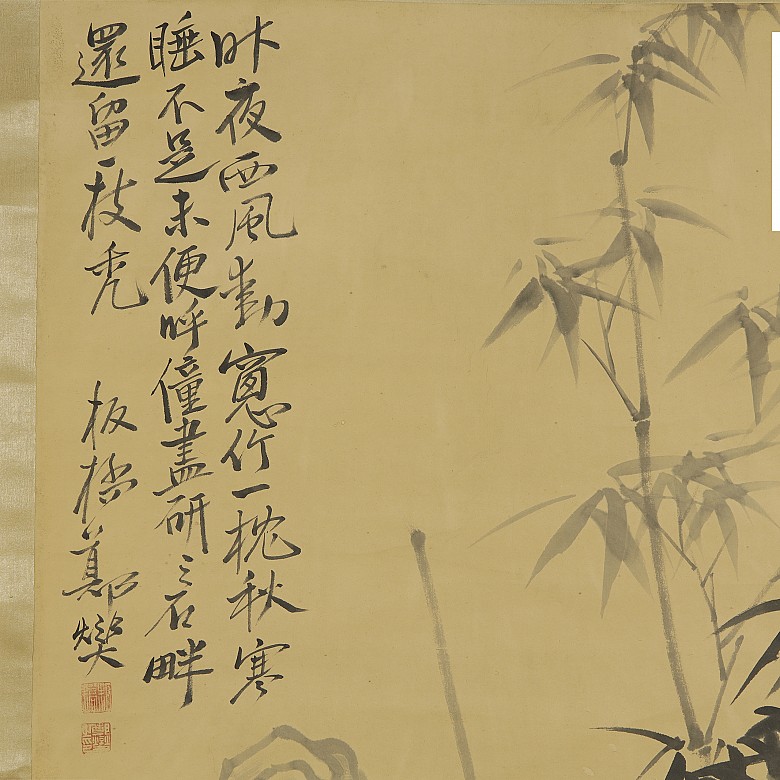 昨夜西風動窻竹一枕秋寒
睡不足未便呼僮盡研之石畔
還留一枝禿
板橋鄭燮